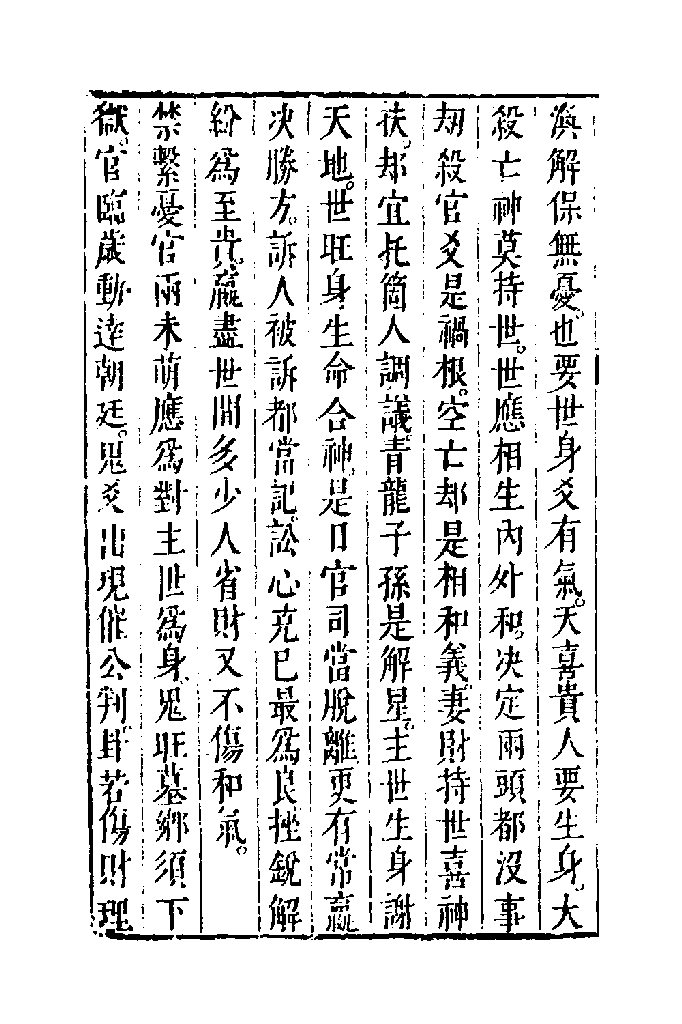 渙解保無憂也要世身爻有氣天喜貴人要生身大
殺亡神莫持世世應相生內外和决定兩頭都沒事
刼殺官爻是禍根空亡却是相和義妻財持世喜神
扶却宜托箇人調議青龍子孫是解星主世生身謝
天地世旺身生命合神是日官司當脫離更有常贏
决勝方訴人被訴都當記訟心克已最爲良挫銳解
紛爲至貴贏盡世間多少人省財又不傷和氣
禁繫憂官兩未萌應爲對主世爲身鬼旺墓鄉須下
獄官臨歲動達朝廷鬼爻出現催公判卦若傷財理